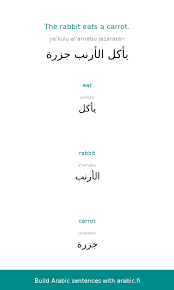 The rabbit eats a carrot.
ya'kulu al'arnabu jazaratan
يأكل الأرنب جزرة
eat
ya'kulu
يأكل
rabbit
al'arnabu
الأرنب
carrot
jazaratan
جزرة
Build Arabic sentences with arabic.fi